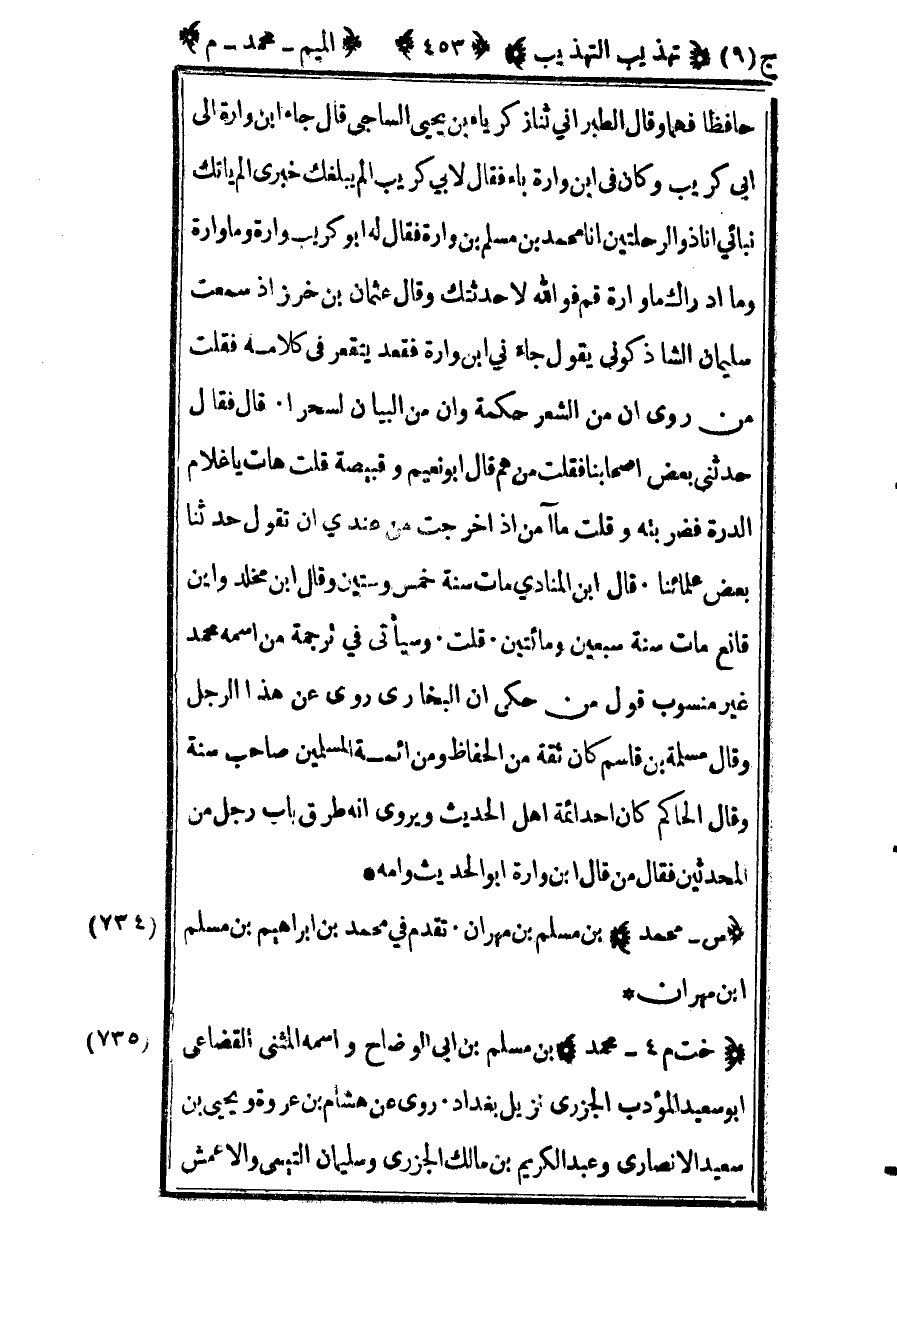 ج (٩) ﴿ تهذيب التهذيب ﴾ ﴿ ٤٥٣ ﴾ ﴿ الميم ـ محمد ـ م ﴾
حافظا فهما وقال الطبراني ثنا زكرياء بن يحيى الساجي قال جاء ابن وارة الى
ابي كريب وكان فى ابن وارة باء فقال لابي كريب الم يبلغك خبرى الم ياتك
نبائي انا ذو الرحلتين انا محمد بن مسلم بن وارة فقال له ابو كريب وارة وما وارة
وما ادراك ما وارة قم فوالله لا حدثتك وقال عثمان بن خرزاذ سمعت
سليمان الشاذكونى يقول جاء ني ابن وارة فقعد يتقعر فى كلامه فقلت
من روى ان من الشعر حكمة وان من البيان لسحرا ٠ قال فقال
حدثني بعض اصحابنا فقلت من هم قال ابو نعيم وقبيصة قلت هات ياغلام
الدرة فضربته وقلت ماآمن اذ اخرجت من عندي ان تقول حدثنا
بعض علمائنا ٠ قال ابن المنادي مات سنة خمس وستين وقال ابن مخلد وابن
قانع مات سنة سبعين ومائتين ٠ قلت ٠ وسيأتى في ترجمة من اسمه محمد
غير منسوب قول من حكى ان البخارى روى عن هذا الرجل
وقال مسلمة بن قاسم كان ثقة من الحفاظ ومن ائمة المسلمين صاحب سنة
وقال الحاكم كان احد ائمة اهل الحديث ويروى انه طرق باب رجل من
المحدثين فقال من قال ابن وارة ابو الحديث وامه ●
﴿ س ـ محمد ﴾ بن مسلم بن مهران ٠ تقدم في محمد بن ابراهيم بن مسلم (٧٣٤)
ابن مهران *
﴿ خت م ٤ ـ محمد ﴾ بن مسلم بن ابى الوضاح واسمه المثنى القضاعى (٧٣٥)
ابو سعيد المؤدب الجزرى نزيل بغداد ٠ روى عن هشام بن عروة ويحيى بن
سعيد الانصارى وعبد الكريم بن مالك الجزرى وسليمان التيمى والاعمش